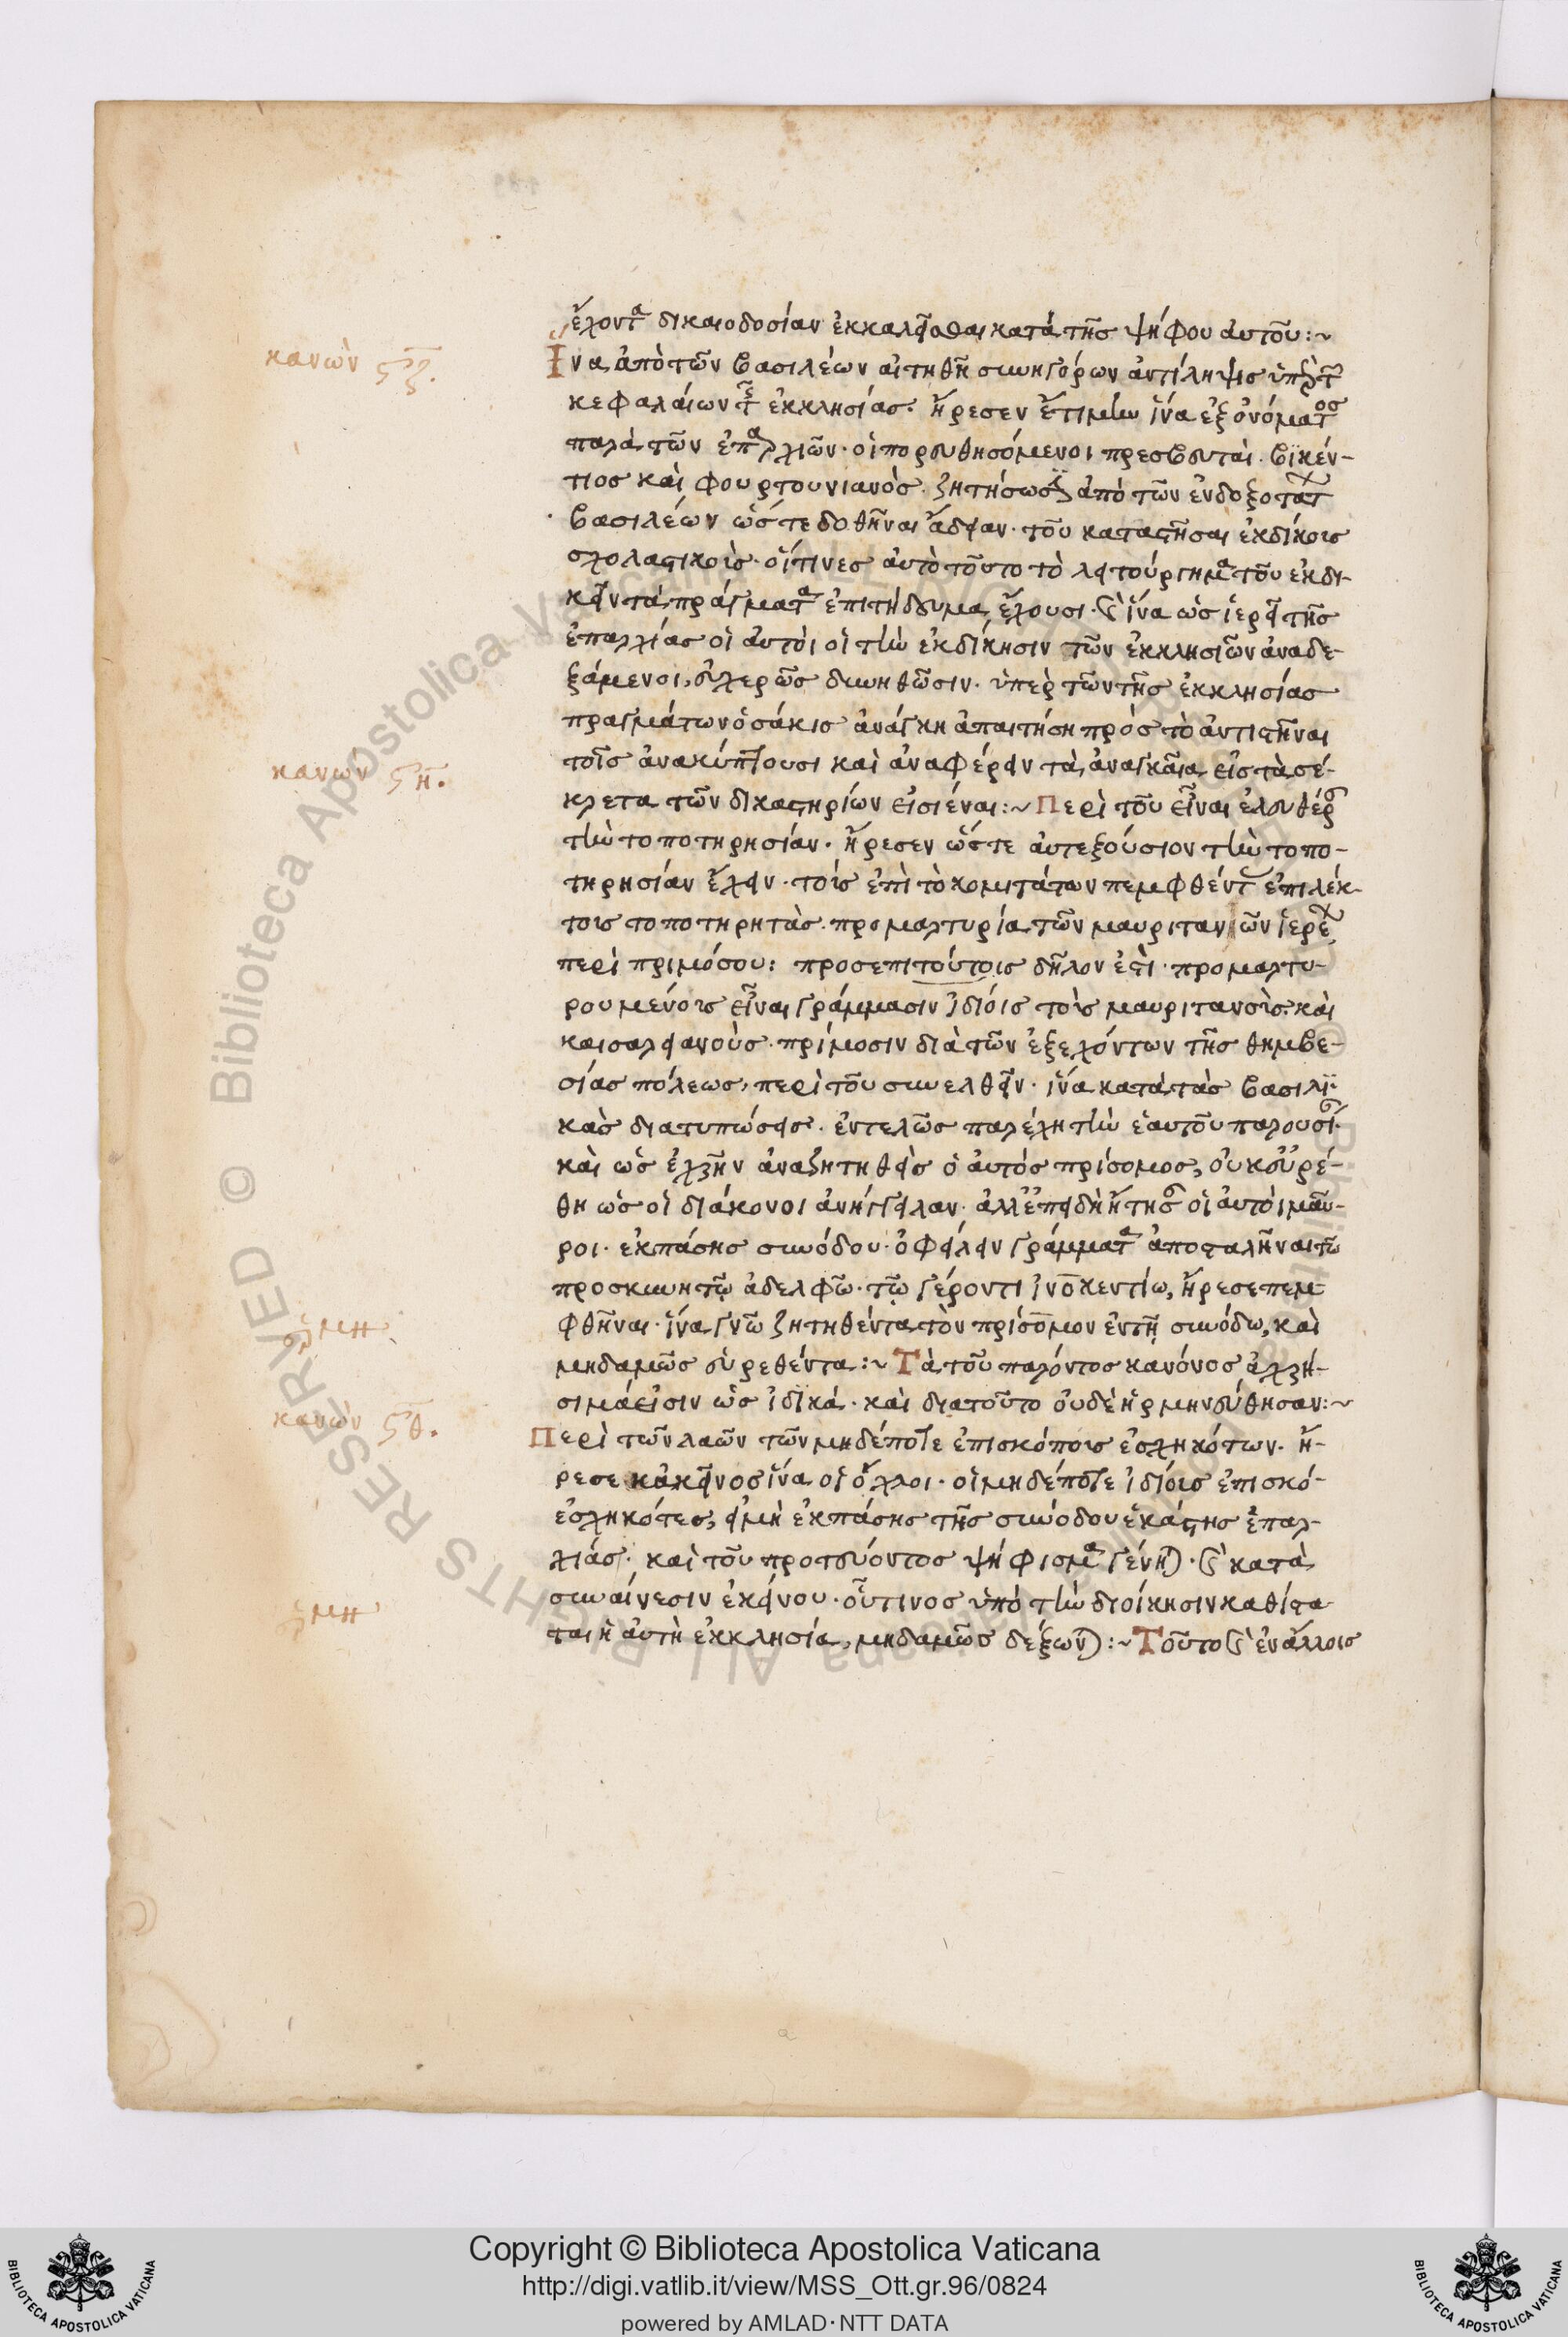 ἔχοντα δικαιοδοσίαν ἐκκαλεῖσθαι κατὰ τῆς ψήφου αὐτοῦ:~
κανὼν ϟζ.
Ἵνα ἀπὸ τῶν βασιλέων αἰτηθῇ συνηγόρων ἀντίληψις ὑπὲρ τ
κεφαλαίων τ ἐκκλησίας. ἤρεσεν ἔτι μὴν ἵνα ἐξ ὀνόματος
παςῶν τῶν ἐπαρχιῶν· οἱ πορευθησόμενοι πρεσβευταὶ. βικέν-
τιος καὶ φουρτουνιανὸς. ζητήσωσι ἀπὸ τῶν ἐνδοξοτάτ
βασιλέων ὥστε δοθῆναι ἄδειαν· τοῦ καταστῆσαι ἐκδίκοις
σχολαστικοὶς. οἵτινες αὐτὸ τοῦτο τὸ λειτούργημα τοῦ ἐκδι-
κεῖν τὰ πράγματα ἐπιτήδευμα ἔχουσι. καὶ ἵνα ὡς ἱερεῖ τῆς
ἐπαρχίας οἱ αὐτοὶ οἱ τὴν ἐκδίκησιν τῶν ἐκκλησιῶν ἀναδε-
ξάμενοι, εὐχερῶς δυνηθῶσιν. ὑπὲρ τῶν τῆς ἐκκλησίας
πραγμάτων ὁσάκις ἀνάγκη ἀπαιτήση πρὸς τὸ ἀντιστῆναι
τοῖς ἀνακύπτουσι καὶ ἀναφέρειν τὰ ἀναγκαῖα εἰς τὰ σέ-
κανὼν ϟη.
κρετα τῶν δικαστηρίων εἰσιέναι:~ Περὶ τοῦ εἶναι ἐλευθέρ
τὴν τοποτηρησίαν. ἤρεσεν ὥστε αὐτεξούσιον τὴν τοπο-
τηρησίαν ἔχειν. τοῖς ἐπὶ τὸ κομιτάτων πεμφθέντ ἐπιλέκ-
τοις τοποτηρητὰς. προμαρτυρία τῶν μαυριτανιῶν ἱερέ
περὶ πριμόσου: προσεπιτούτοις δῆλον ἐστὶ. προμαρτυ-
ρουμένοις εἶναι γράμμασιν ἰδίοις τοὶς μαυριτανοὶς. καὶ
καισαρειανοὺς. πρίμοσιν διὰ τῶν ἐξεχόντων τῆς θημβε-
σίας πόλεως, περὶ τοῦ συνελθεῖν. ἵνα κατὰ τὰς βασιλι-
κὰς διατυπώσεις. ἐντελῶς παρέχη τὴν ἑαυτοῦ παρουσί.
καὶ ὡς ἐχρῆν ἀναζητηθεὶς ὁ αὐτὸς πρίσομος, οὐκ εὑρέ-
θη ὡς οἱ διάκονοι ἀνήγγειλαν. ἀλλ' ἐπειδὴ ᾔτησ οἱ αὐτοὶ μαῦ-
ροι. ἐκ πάσης συνόδου. ὀφείλειν γράμματα ἀποσταλῆναι τῶ
προσκυνητῷ ἀδελφῶ. τῷ γέροντι ἰνοκεντίω, ἤρεσε πεμ
φθῆναι. ἵνα γνῶ ζητηθέντα τὸν πρίσομον ἐν τῇ συνόδω, καὶ
ἑρμη
μηδαμῶς εὑρεθέντα:~ Τὰ τοῦ παρόντος κανόνος ἀχρή-
σιμά εἰσιν ὡς ἰδικά. καὶ διατοῦτο οὐδὲ ἡρμηνεύθησαν:~
κανὼν ϟθ.
Περὶ τῶν λαῶν τῶν μηδέποτε ἐπισκόποις ἐσχηκότων. ἤ-
ρεσε κἀκεῖνος ἵνα οἱ ὄχλοι. οἱ μηδέποτε ἰδίοις ἐπισκό-
ἐσχηκότες, εἰ μὴ ἐκ πάσης τῆς συνόδου ἑκάστης ἐπαρ-
χιάς. καὶ τοῦ πρωτεύοντος ψήφισμα γένηται. καὶ κατὰ
συναίνεσιν ἐκείνου. οὗτινος ὑπὸ τὴν διοίκησιν καθίστα
ἑρμη
ται ἡ αὐτὴ ἐκκλησία, μηδαμῶς δέξωνται:~ Τοῦτο καὶ ἐν ἄλλοις
Biblioteca Apostolica Vaticana ALL RIGHTS RESERVED ©
Copyright © Biblioteca Apostolica Vaticana
http://digi.vatlib.it/view/MSS_Ott.gr.96/0824
powered by AMLAD·NTT DATA
BIBLIOTECA APOSTOLICA VATICANA
BIBLIOTECA APOSTOLICA VATICANA